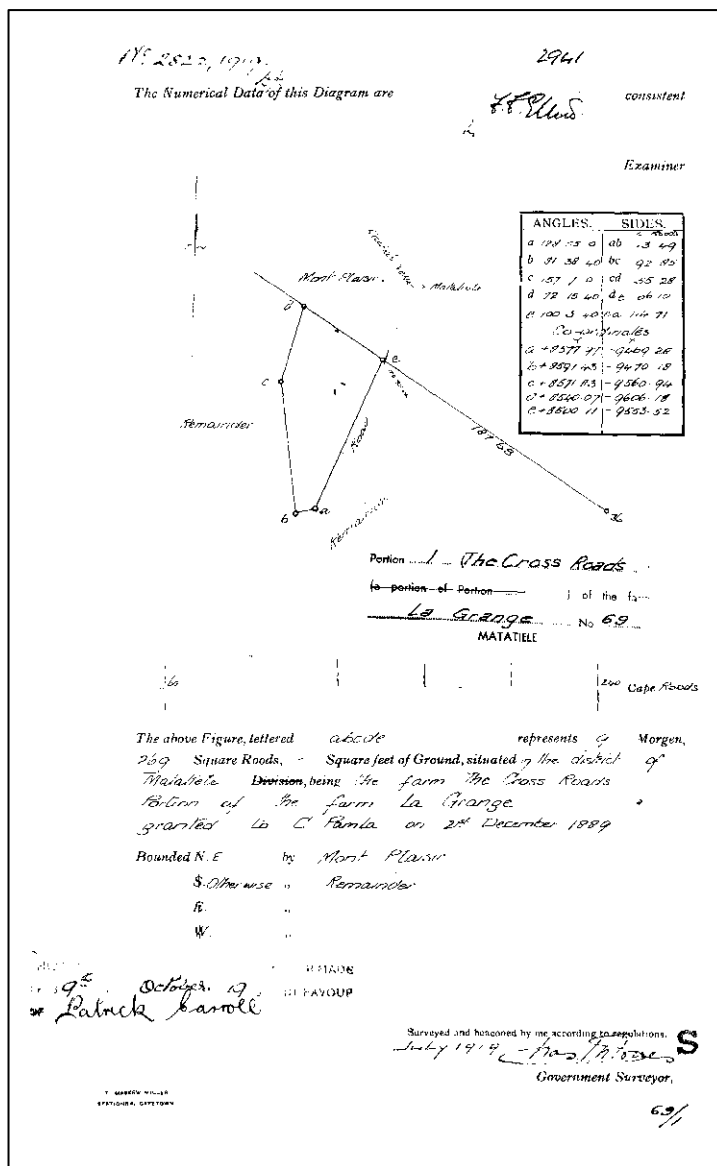 2941
The Numerical Data of this Diagram are consistent
Examiner
ANGLES. SIDES.
b 91 38 40 bc 92 85
c 157 1 0 cd 55 28
d 72 15 40 de
e 100 3 40
Co-ordinates
b + 8591.43 - 9470.18
c + 8571.83 - 9560.94
d + 8540.07 - 9606.18
e + 8500.11 - 9553.52
Mont Plaisir
Matatiele
d
e
c
Remainder
Road
b
a
Remainder
Portion 1 The Cross Roads
(a portion of Portion ) of the
La Grange No 69
MATATIELE
60 240 Cape Roods
The above Figure, lettered abcde represents Morgen,
769 Square Roods, - Square feet of Ground, situated in the district of
Matatiele Division, being the farm The Cross Roads
Portion of the farm La Grange
granted to C Pamla on 2nd December 1889
Bounded N.E by Mont Plaisir
S. Otherwise " Remainder
E. "
W. "
MADE
9th October. 19 FAVOUR
Patrick Carroll
Surveyed and beaconed by me according to regulations. S
July 1919
Government Surveyor,
T. MASKEW MILLER
STATIONER, CAPETOWN
69/1